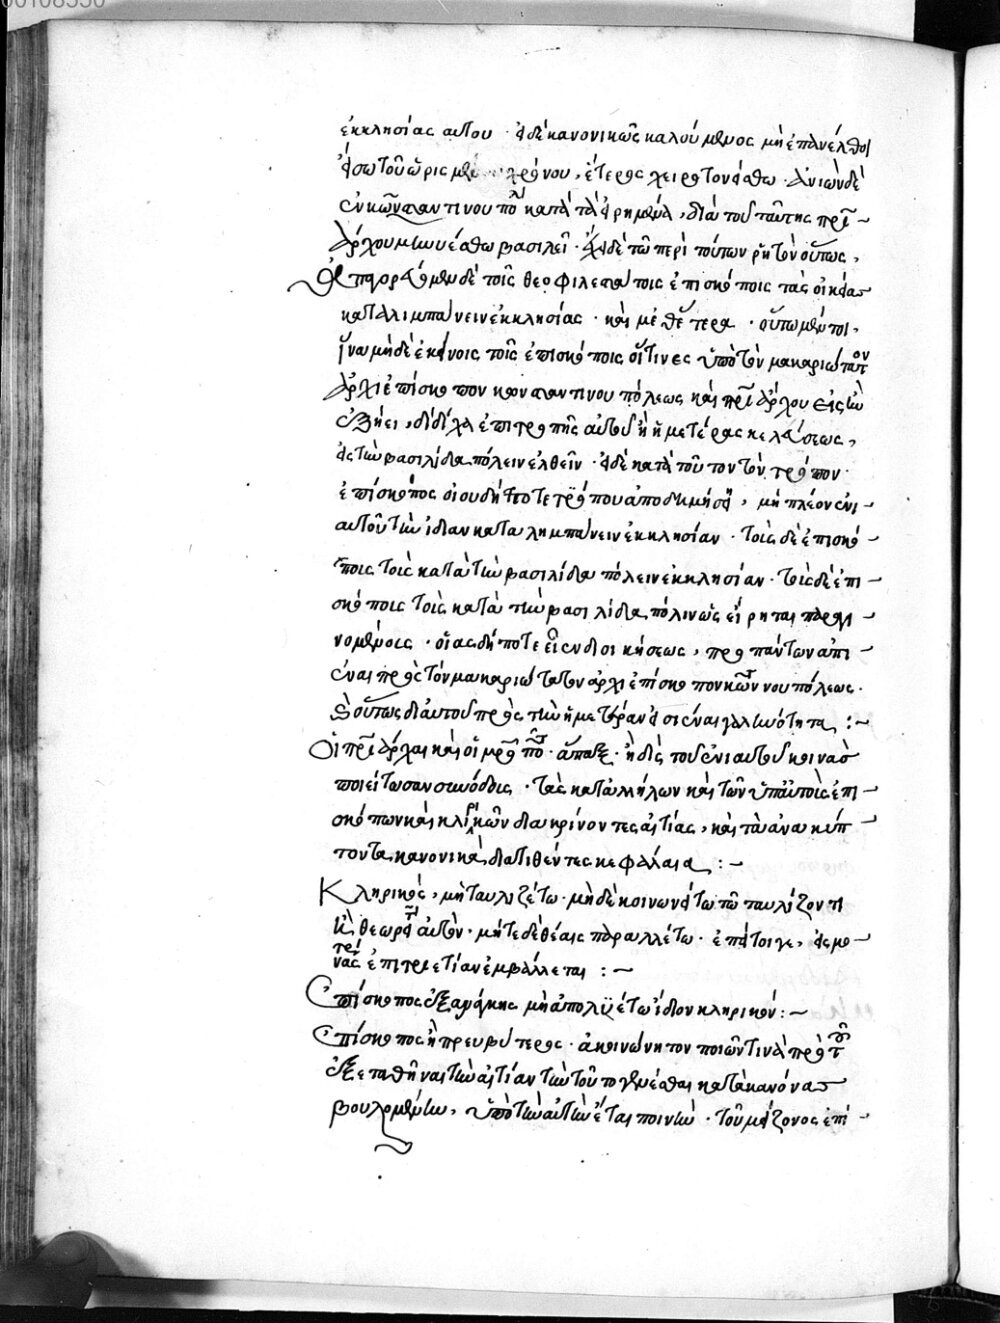 ἐκκλησίας αὐτοῦ · ὁ δὲ κανονικῶς καλούμενος μὴ ἐπανέλθοι
εἴσω τοῦ ὡρισμένου χρόνου, ἕτερος χειροτονείσθω · ἀνιὼν δὲ
ἐν κωνσταντινουπόλει κατὰ τὰ εἰρημένα, διὰ τοῦ ταύτης πρι-
άρχου μηνυέσθω βασιλεῖ · ἔχει δὲ τὸ περὶ τούτων ῥητὸν οὕτως,
Ἀπαγορεύομεν δὲ τοῖς θεοφιλεστάτοις ἐπισκόποις τὰς οἰκείας
καταλιμπάνειν ἐκκλησίας · καὶ μεθ' ἕτερα · οὕτω μέντοι,
ἵνα μηδὲ ἐκείνοις τοῖς ἐπισκόποις οἵτινες ὑπὸ τὸν μακαριώτατον
ἀρχιεπίσκοπον κωνσταντινουπόλεως καὶ πρι άρχου εἰσὶν
ἐξῇ, δίχα ἐπιτροπῆς αὐτοῦ ἢ ἡμετέρας κελεύσεως,
εἰς τὴν βασιλίδα πόλειν ἐλθεῖν · εἰ δὲ κατὰ τοῦτον τὸν τρόπον
ἐπίσκοπος οἱουδήποτε τρόπου ἀποδημήσῃ, μὴ πλέον ἐνι-
αυτοῦ τὴν ἰδίαν καταλημπάνειν ἐκκλησίαν · τοῖς δὲ ἐπισκό-
ποις τοῖς κατὰ τὴν βασιλίδα πόλειν ἐκκλησίαν · τοῖς δὲ ἐπι-
σκόποις τοῖς κατὰ τὴν βασιλίδα πόλιν ὡς εἴρηται παραγι-
νομένοις · οἵας δήποτε εἰσὶν διοικήσεως, προπάντων ἀπι-
έναι πρὸς τὸν μακαριώτατον ἀρχιεπίσκοπον κωννουπόλεως ·
καὶ οὕτως δι' αὐτοῦ πρὸς τὴν ἡμετέραν εἰσιέναι γαληνότητα :~
Οἱ πριάρχαι καὶ οἱ μροπο · ἅπαξ · ἢ δὶς τοῦ ἐνιαυτοῦ κοινὰς
ποιείτωσαν συνόδους · τὰς κατ' ἀλλήλων καὶ τῶν ὑπ' αὐτοῖς ἐπι-
σκόπων καὶ κληρικῶν διακρίνοντες αἰτίας, καὶ τὰ ἀνακύπ-
τοντα κανονικὰ διατιθέντες κεφάλαια :~
Κληρικὸς, μὴ ταυλιζέτω · μηδὲ κοινωνείτω τῷ ταυλίζοντι
ἢ θεωρεῖ αὐτὸν · μήτε δὲ θέαις παραλλέτω · ἐπεί τοι γε, εἰς μο-
ναστήριον ἐπὶ τριετίαν ἐμβάλλεται :~
Ἐπίσκοπος ἐξ ἀνάγκης μὴ ἀπολυέτω ἴδιον κληρικόν :~
Ἐπίσκοπος ἢ πρεσβύτερος · ἀκοινώνητον ποιῶν τινὰ πρὸ τοῦ
ἐξετασθῆναι τὴν αἰτίαν τὴν τοῦτο γενέσθαι κατὰ κανόνας
βουλομένην, ὑπὸ τὴν αὐτὴν ἔσται ποινὴν · τοῦ μείζονος ἐπι-